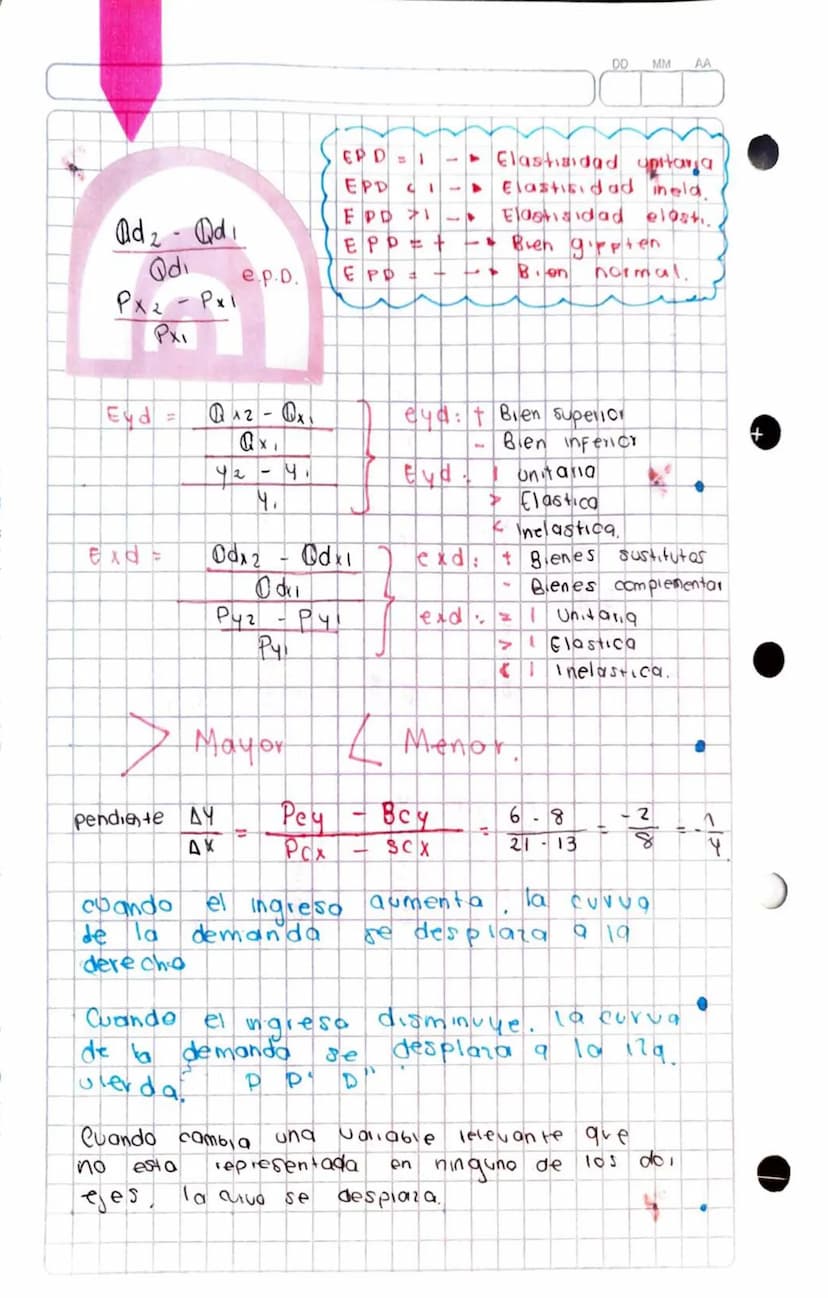 DD MM AA
EPD = 1 -> Elastisidad unitaria
EPD < 1 -> Elastisidad inela.
EPD > 1 -> Elastisidad elasti.
EPD = + -> Bien gippten
EPD = - -> Bien normal.
Qd2 - Qd1
Qd1
e.p.D.
Px2 - Px1
Px1
Eyd = Qx2 - Qx1
Qx1
y2 - y1
y1
eyd: + Bien superior
- Bien inferior
Eyd: 1 unitario
> Elastica
< Inelastica.
Exd = Qdx2 - Qdx1
Qdx1
Py2 - Py1
Py1
exd: + Bienes sustitutos
- Bienes complementar
exd: = 1 Unitaria
> 1 Elastica
< 1 Inelastica.
> Mayor < Menor.
pendiente ΔY/ΔX = Pcy - Bcy / Pcx - scx = 6 - 8 / 21 - 13 = -2/8 = -1/4.
cuando el ingreso aumenta, la curva
de la demanda se desplaza a la
derecha
Cuando el ingreso disminuye. la curva
de la demanda se desplaza a la izq.
uierda. D D' D"
Cuando cambia una variable relevante que
no esta representada en ninguno de los dos
ejes, la curva se desplaza.